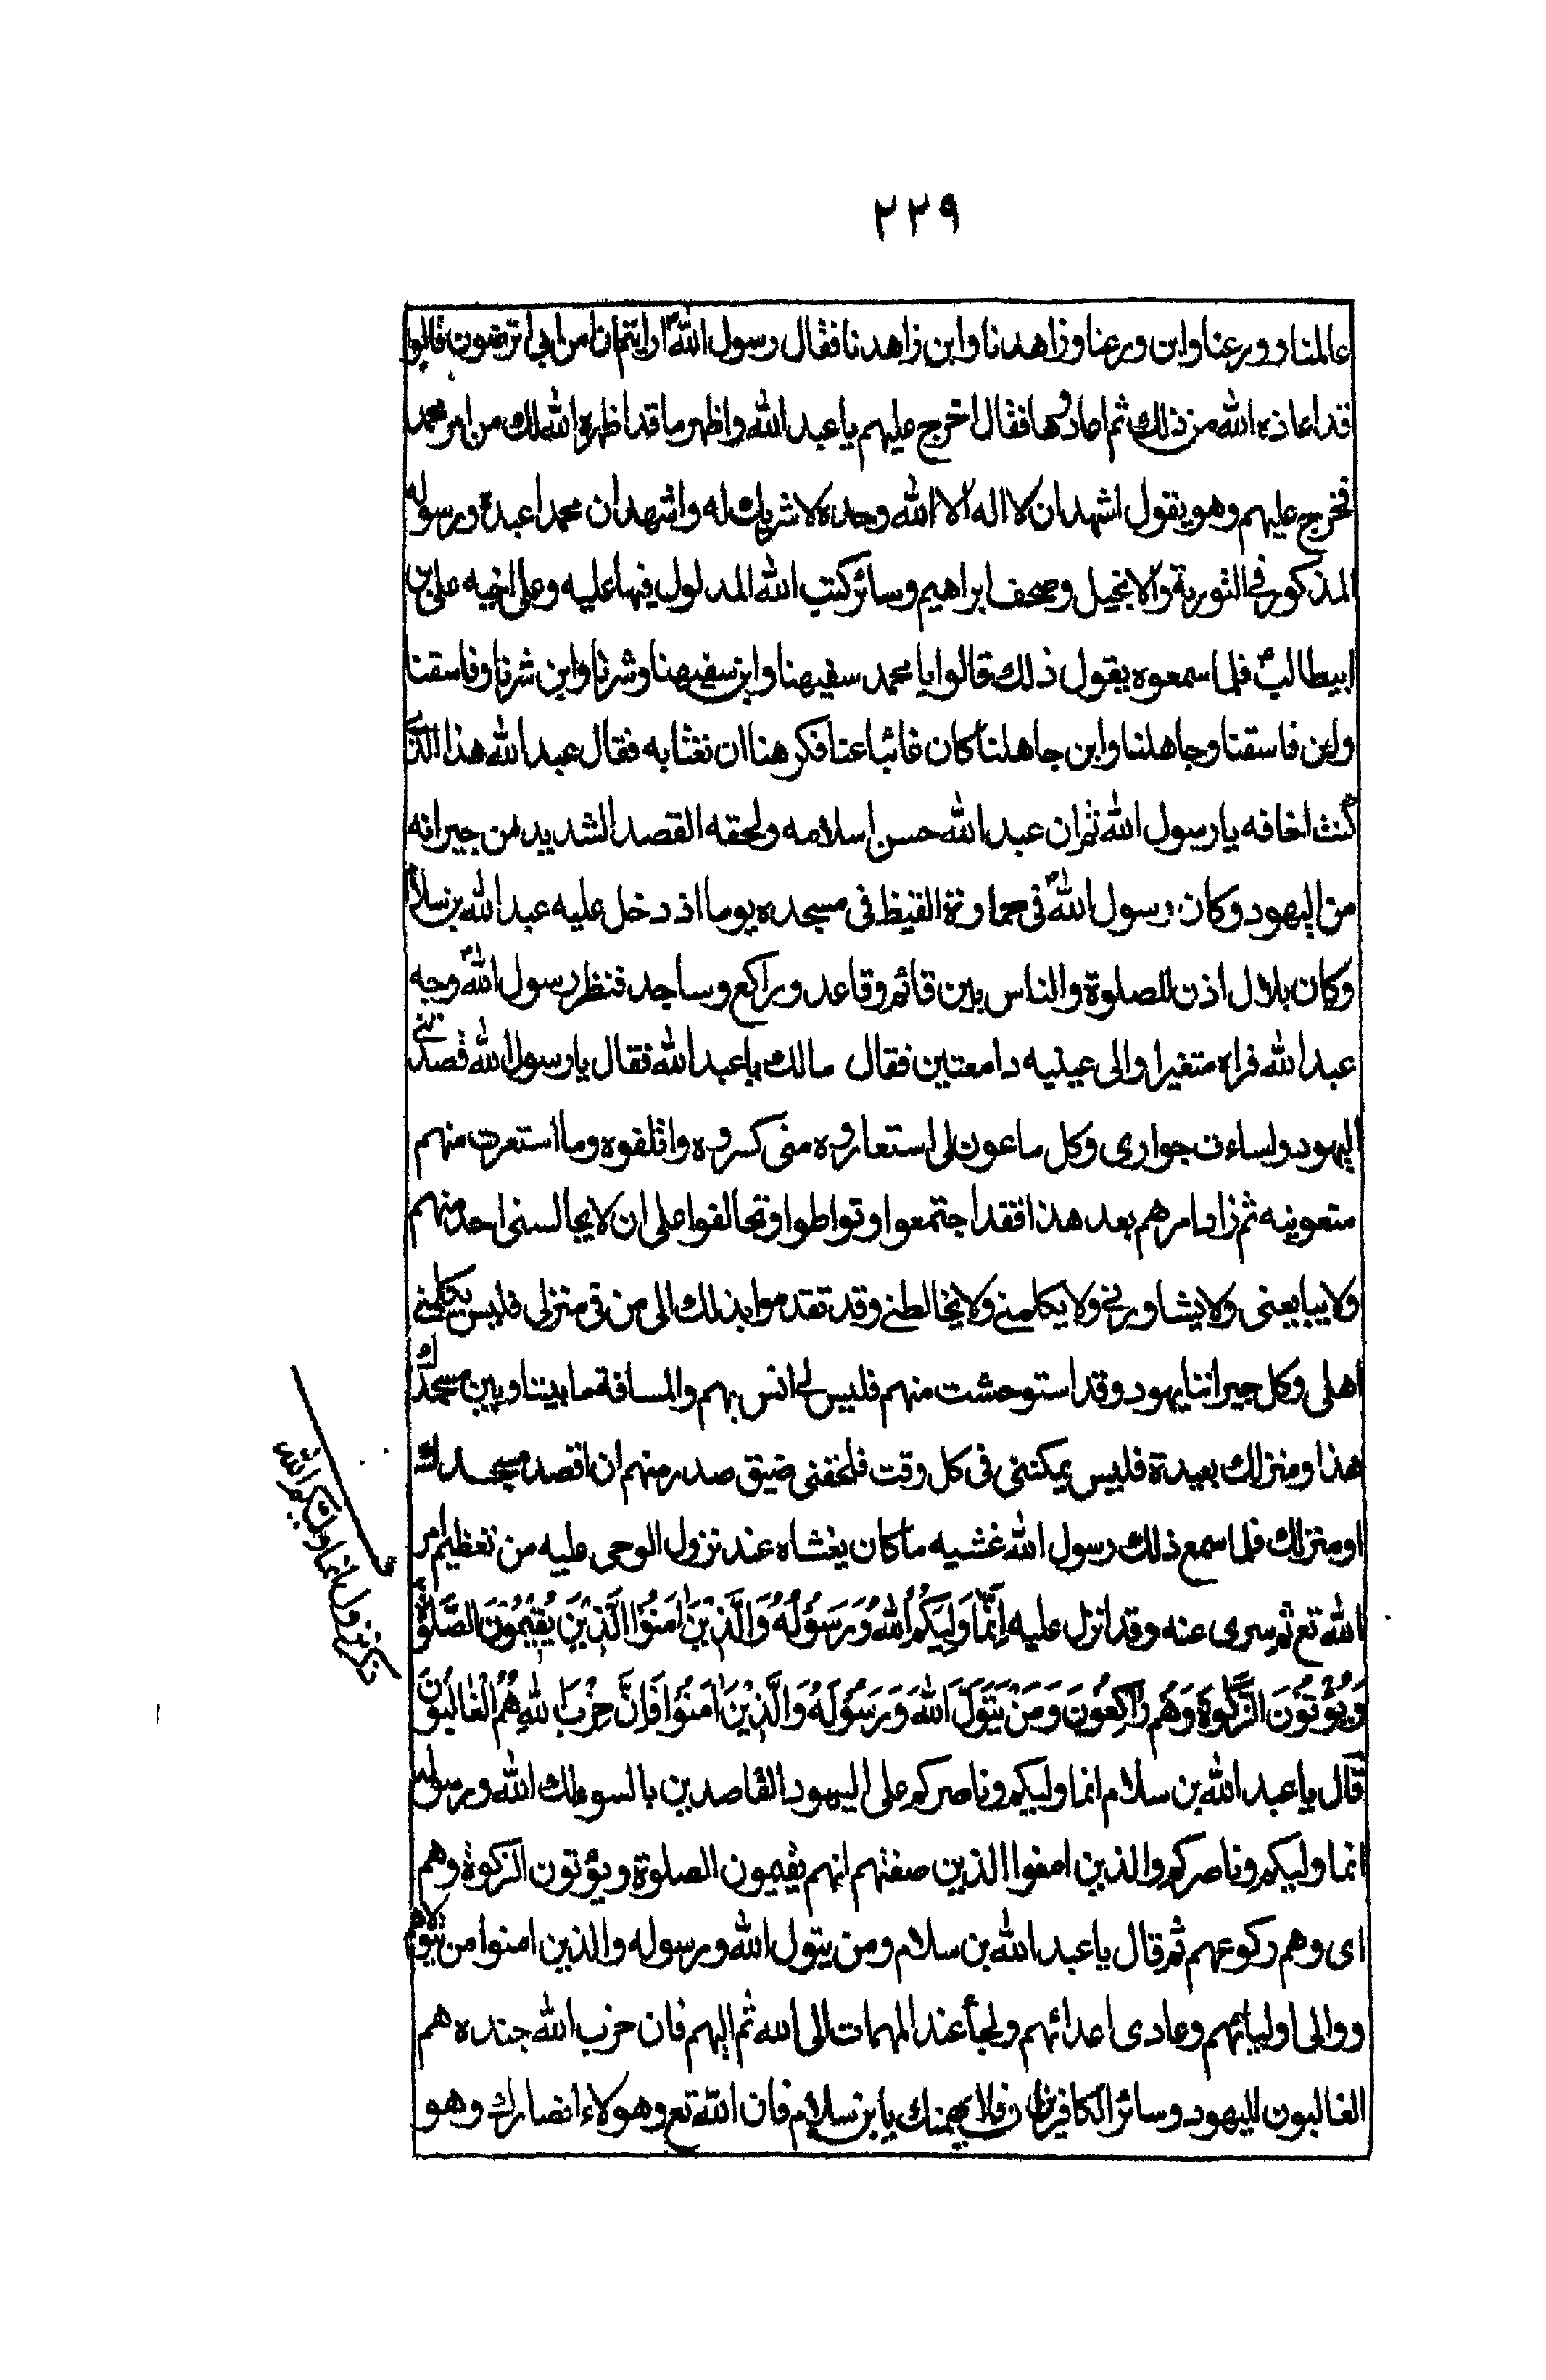 ٢٢٩
عالمنا وورعنا وابن ورعنا وزاهدنا وابن زاهدنا فقال رسول الله ارايتم ان امن بى اترضون قالوا
قد اعاذه الله من ذلك ثم اعادوها فقال اخرج عليهم يا عبد الله واظهر ما قد اظهره الله لك من امر محمد
فخرج عليهم وهو يقول اشهد ان لا اله الا الله وحده لا شريك له واشهد ان محمدا عبده ورسوله
المذكور فى التورية والانجيل وصحف ابراهيم وسائر كتب الله المدلول فيها عليه وعلى اخيه على بن
ابيطالب فلما سمعوه يقول ذلك قالوا يا محمد سفيهنا وابن سفيهنا وشرنا وابن شرنا وفاسقنا
وابن فاسقنا وجاهلنا وابن جاهلنا كان غائبا عنا فكرهنا ان نغتابه فقال عبد الله هذا الذى
كنت اخافه يا رسول الله ثم ان عبد الله حسن اسلامه ولحقه القصد الشديد من جيرانه
من اليهود وكان رسول الله فى حمارة القيظ فى مسجده يوما اذ دخل عليه عبد الله بن سلام
وكان بلال اذن للصلوة والناس بين قائم وقاعد وراكع وساجد فنظر رسول الله وجه
عبد الله فراه متغيرا والى عينيه دامعتين فقال مالك يا عبد الله فقال يا رسول الله قصدتنى
اليهود واساءت جوارى وكل ماعون لى استعاروه منى كسروه واتلفوه وما استعرت منهم
منعونيه ثم زاد امرهم بعد هذا فقد اجتمعوا وتواطوا وتحالفوا على ان لا يجالسنى احد منهم
ولا يبايعنى ولا يشاورنى ولا يكلمنى ولا يخالطنى وقد تقدموا بذلك الى من فى منزلى فليس يكلمنى
اهلى وكل جيراننا يهود وقد استوحشت منهم فليس لى انس بهم والمسافة ما بيننا وبين مسجدك
هذا ومنزلك بعيدة فليس يمكننى فى كل وقت يلحقنى ضيق صدر منهم ان اقصد مسجدك
او منزلك فلما سمع ذلك رسول الله غشيه ما كان يغشاه عند نزول الوحى عليه من تعظيم امر
الله تع ثم سرى عنه وقد انزل عليه اِنَّمَا وَلِيُّكُمُ اللهُ وَرَسُولُهُ وَالَّذِينَ اٰمَنُوا الَّذِينَ يُقِيمُونَ الصَّلٰوةَ
وَيُؤْتُونَ الزَّكٰوةَ وَهُمْ رٰاكِعُونَ وَمَنْ يَتَوَلَّ اللهَ وَرَسُولَهُ وَالَّذِينَ اٰمَنُوا فَاِنَّ حِزْبَ اللهِ هُمُ الْغٰالِبُونَ
قال يا عبد الله بن سلام انما وليكم وناصركم على اليهود القاصدين بالسوء لك الله ورسوله
انما وليكم وناصركم والذين امنوا الذين صفتهم انهم يقيمون الصلوة ويؤتون الزكوة وهم
اى وهم ركوعهم ثم قال يا عبد الله بن سلام ومن يتول الله ورسوله والذين امنوا من يتولاهم
ووالى اوليائهم وعادى اعدائهم ولجأ عند المهمات الى الله ثم اليهم فان حزب الله جنده هم
الغالبون لليهود وسائر الكافرين فلا يهمنك يا بن سلام فان الله تع وهولاء انصارك وهو
ذكر نزول انما وليكم الله